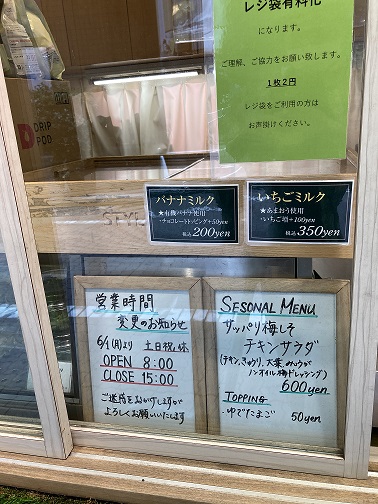 レジ袋有料化
になります。
ご理解、ご協力をお願い致します。
1枚2円
レジ袋をご利用の方は
お声掛けください。
DRIP
POD
バナナミルク
★有機バナナ使用
・チョコレートトッピング+50yen
税込 200yen
いちごミルク
★あまおう使用
・いちご増+100yen
税込 350yen
営業時間
変更のお知らせ
6/1(月)より 土日祝休
OPEN 8:00
CLOSE 15:00
ご迷惑をおかけしますが
よろしくお願いいたします
SESONAL MENU
サッパリ梅しそ
チキンサラダ
(チキン、きゅうり、大葉、みょうが
ノンオイル梅ドレッシング)
600yen
TOPPING
・ゆでたまご 50yen